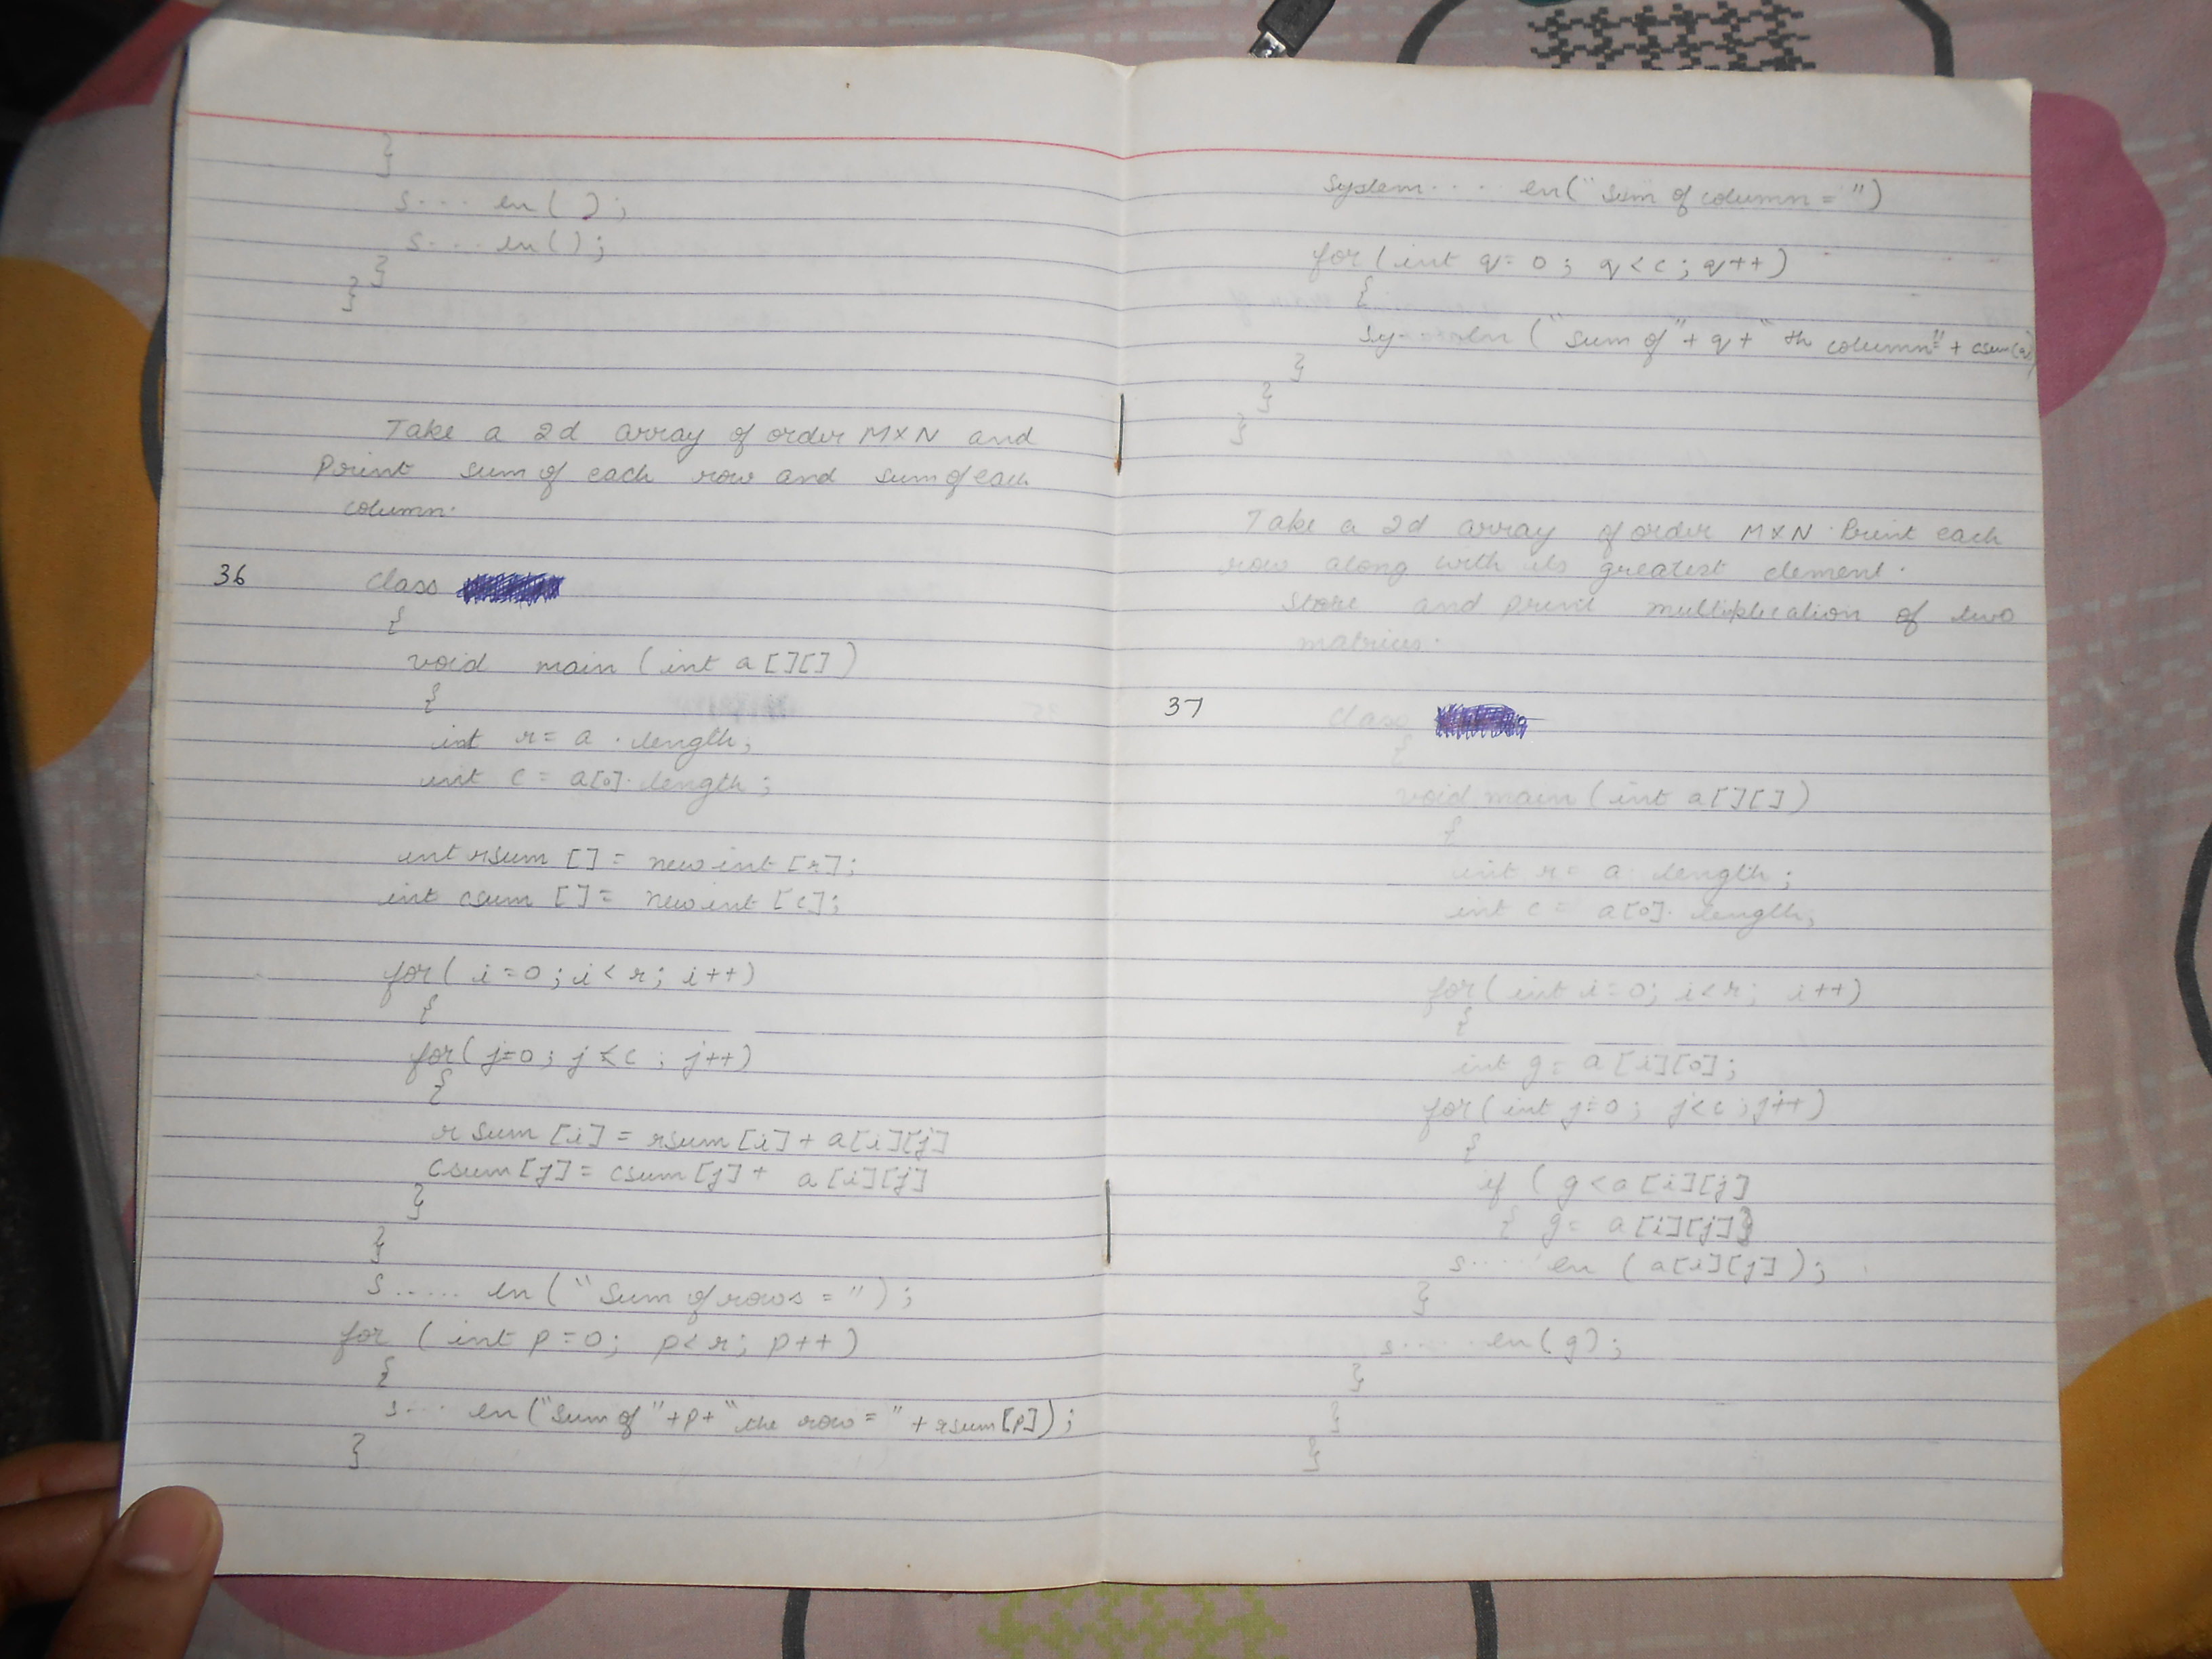 }
s... ln( );
s... ln( );
}
}
Take a 2d array of order M×N and
Print sum of each row and sum of each
column.
36 class
{
void main (int a[][])
{
int r= a . length;
int c = a[0]. length;
int rsum [] = new int [r];
int csum [] = new int [c];
for( i=0; i< r; i++)
{
for( j=0; j<c ; j++)
{
rsum [i] = rsum [i] + a[i][j]
csum[j] = csum [j] + a[i][j]
}
}
s..... ln("Sum of rows = ");
for (int p=0; p<r; p++)
{
s... ln("Sum of"+p+"the row = " + rsum[p]);
}
System.... ln("Sum of column = ")
for (int q= 0; q<c; q++)
{
Sy-...ln ("Sum of"+ q+ "th column=" + csum(q)
}
}
}
Take a 2d array of order M×N. Print each
row along with its greatest element.
Store and print multiplication of two
matrices.
37 class
{
void main (int a[][])
{
int r= a. length;
int c = a[0]. length;
for( int i=0; i<r; i++)
{
int g= a[i][0];
for(int j=0; j<c; j++)
{
if (g<a[i][j]
{ g= a[i][j]}
s..... ln (a[i][j]);
}
s..... ln(g);
}
}
}